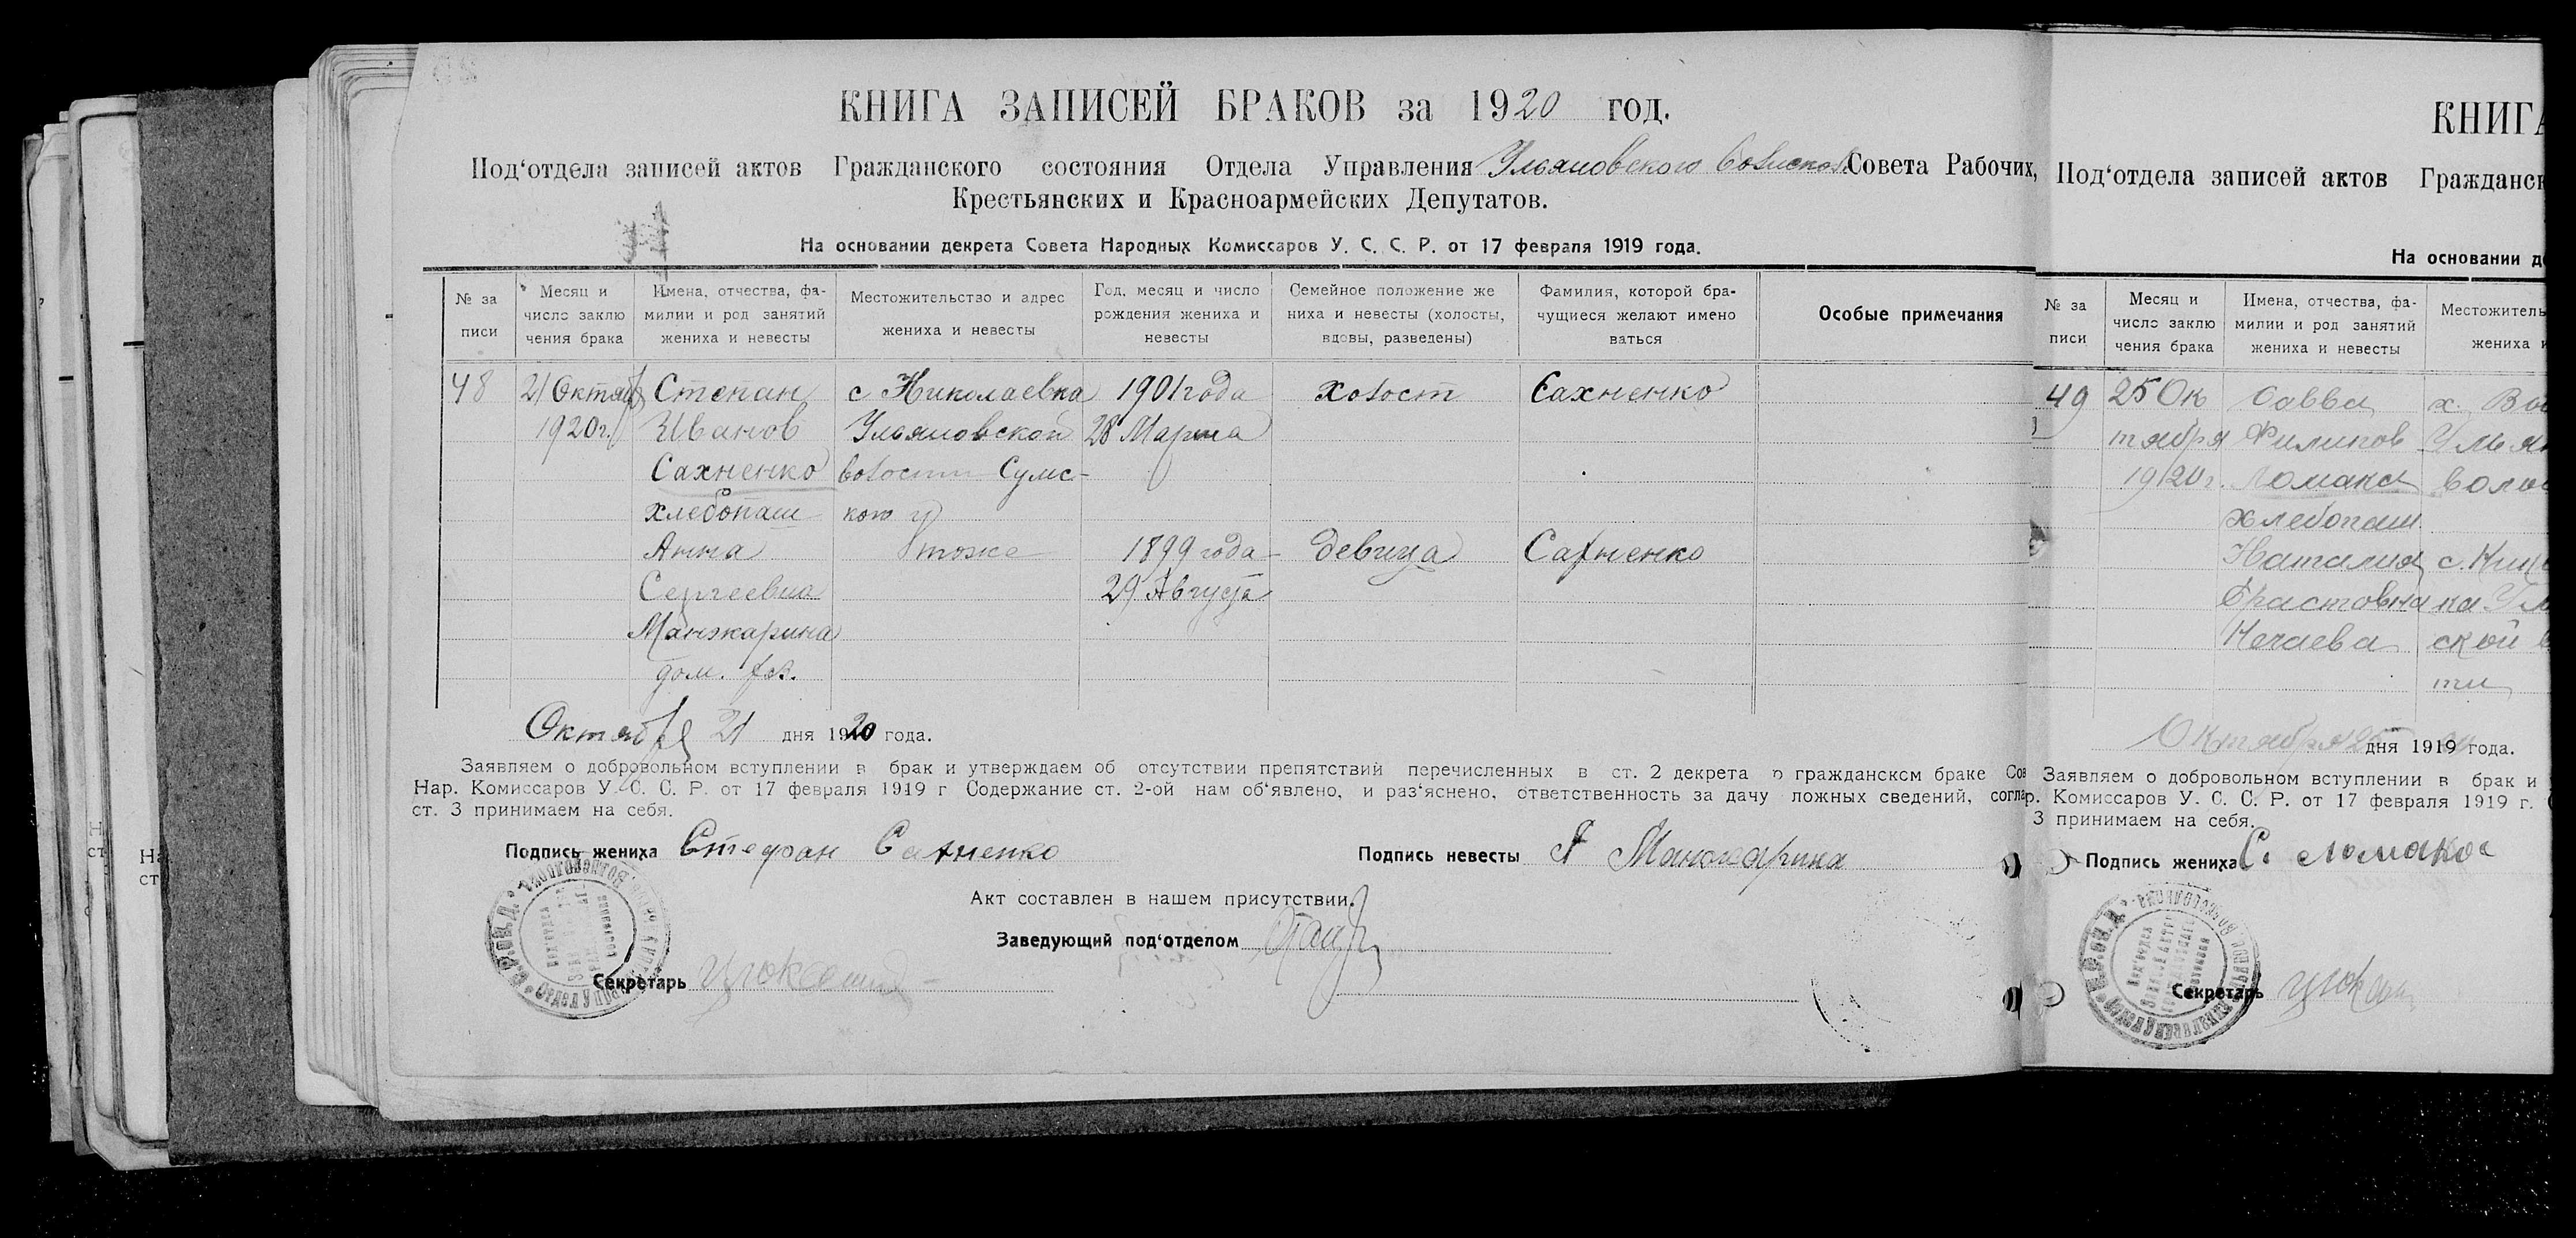 КНИГА ЗАПИСЕЙ БРАКОВ за 1920 год.
Под‘отдела записей актов Гражданского состояния Отдела Управления Ульяновского Волиспол. Совета Рабочих,
Крестьянских и Красноармейских Депутатов.
На основании декрета Совета Народных Комиссаров У. С. С. Р. от 17 февраля 1919 года.
№ за
писи
Месяц и
число заклю
чения брака
Имена, отчества, фа-
милии и род занятий
жениха и невесты
Местожительство и адрес
жениха и невесты
Год, месяц и число
рождения жениха и
невесты
Семейное положение же
ниха и невесты (холосты,
вдовы, разведены)
Фамилия, которой бра-
чущиеся желают имено
ваться
Особые примечания
48
21 Октяб
1920г.
Степан
Иванов
Сахненко
хлебопаш
с Николаевка
Ульяновской
волости Сумс-
кого у
1901 года
28 Марта
холост
Сахненко
Анна
Сергеевна
Манжарина
дом. хоз.
тоже
1899 года
29 Августа
девица
Сахненко
Октября 21 дня 1920 года.
Заявляем о добровольном вступлении в брак и утверждаем об отсутствии препятствий перечисленных в ст. 2 декрета о гражданском браке Сов
Нар. Комиссаров У. С. С. Р. от 17 февраля 1919 г Содержание ст. 2-ой нам об‘явлено, и раз‘яснено, ответственность за дачу ложных сведений, соглас
ст. 3 принимаем на себя.
Подпись жениха Стефан Сахненко
Подпись невесты А Манжарина
Акт составлен в нашем присутствии.
Заведующий под‘отделом
Секретарь
КНИГА
Под‘отдела записей актов Гражданск
На основании де
№ за
писи
Месяц и
число заклю
чения брака
Имена, отчества, фа-
милии и род занятий
жениха и невесты
Местожитель
жениха и
49
25 Ок
тября
1920г.
Савва
Филипов
Ломака
хлебопаш
Наталия
Ерастовна
Нечаева
х. Вос
Ульян
волос
ской в
ти
Октября 25 дня 1919 года.
Заявляем о добровольном вступлении в брак и
р. Комиссаров У. С. С. Р. от 17 февраля 1919 г.
3 принимаем на себя.
Подпись жениха С. Ломака
Секретарь